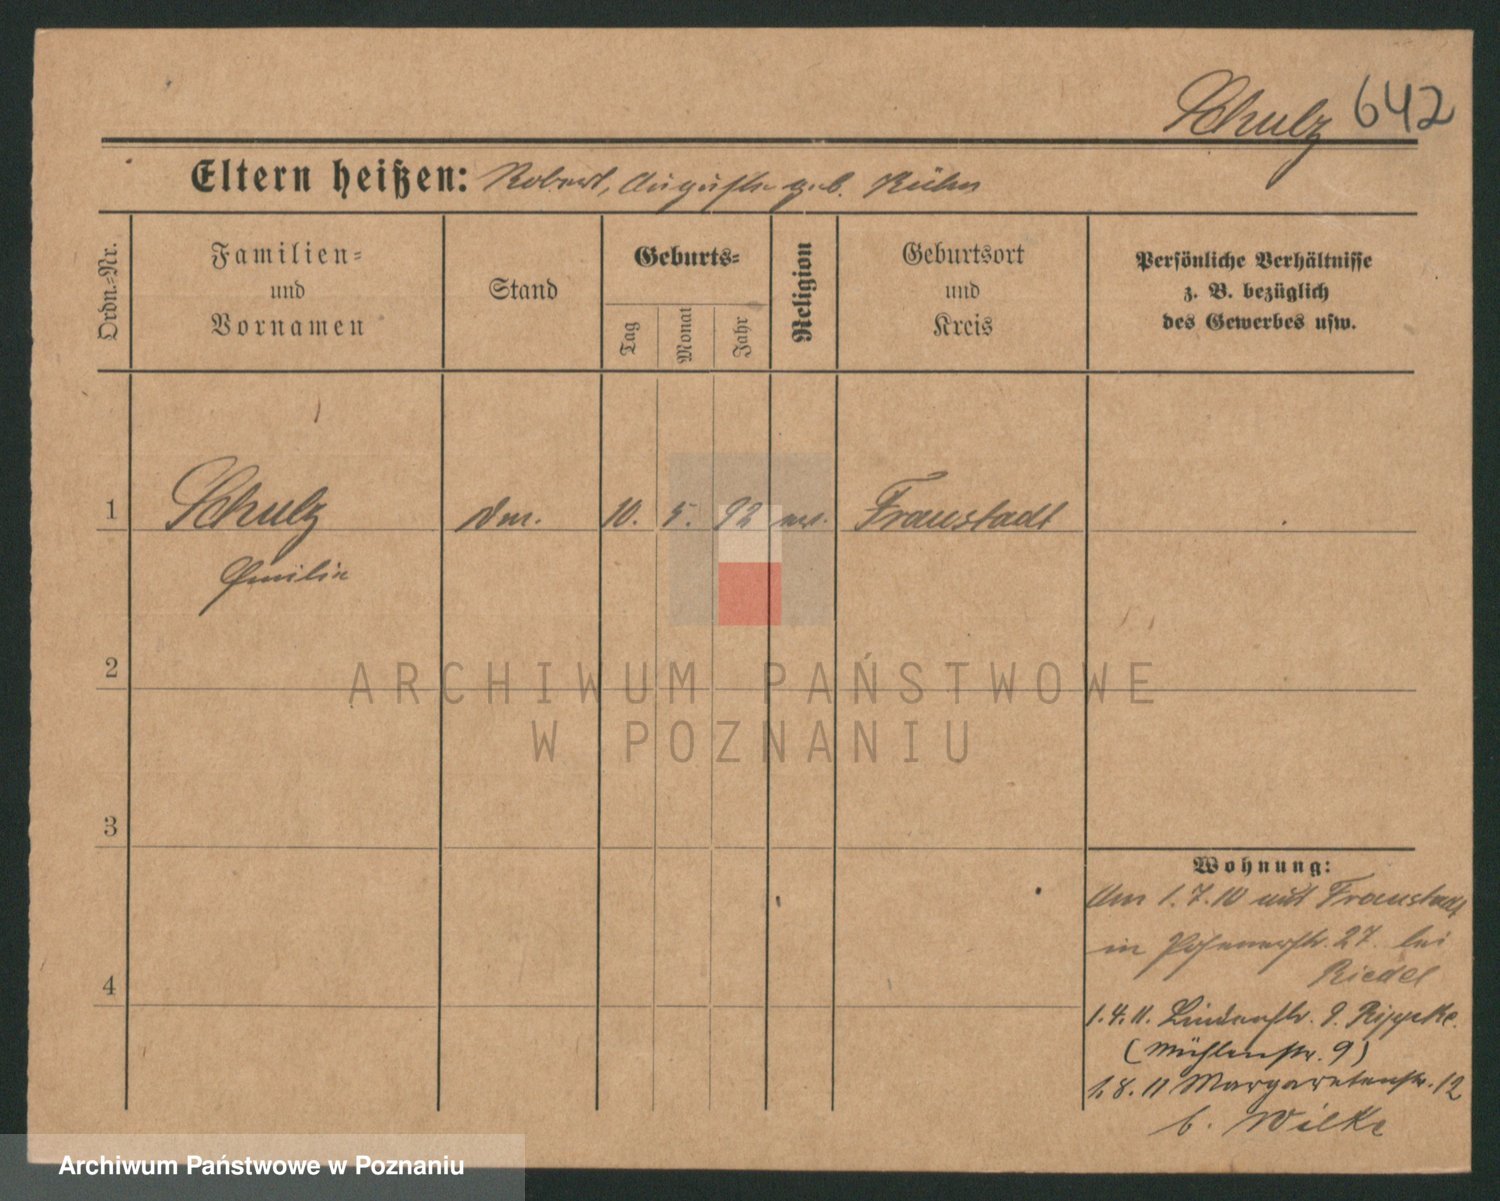 Schulz 642
Eltern heißen: Robert, Auguste geb. Kühn
Ordn.-Nr.
Familien-
und
Vornamen
Stand
Geburts-
Tag
Monat
Jahr
Religion
Geburtsort
und
Kreis
Persönliche Verhältnisse
z. B. bezüglich
des Gewerbes usw.
1 Schulz 10. 5. 92 Fraustadt
Emilie
2
ARCHIWUM PAŃSTWOWE
W POZNANIU
3
Wohnung:
Am 1.7.10 aus Fraustadt
in Posenerstr. 27. bei
Riedel
4
1.4.11. Lindenstr. 9. Rippcke.
(Mühlenstr. 9)
1.8.11 Margaretenstr. 12
b. Wilke
Archiwum Państwowe w Poznaniu